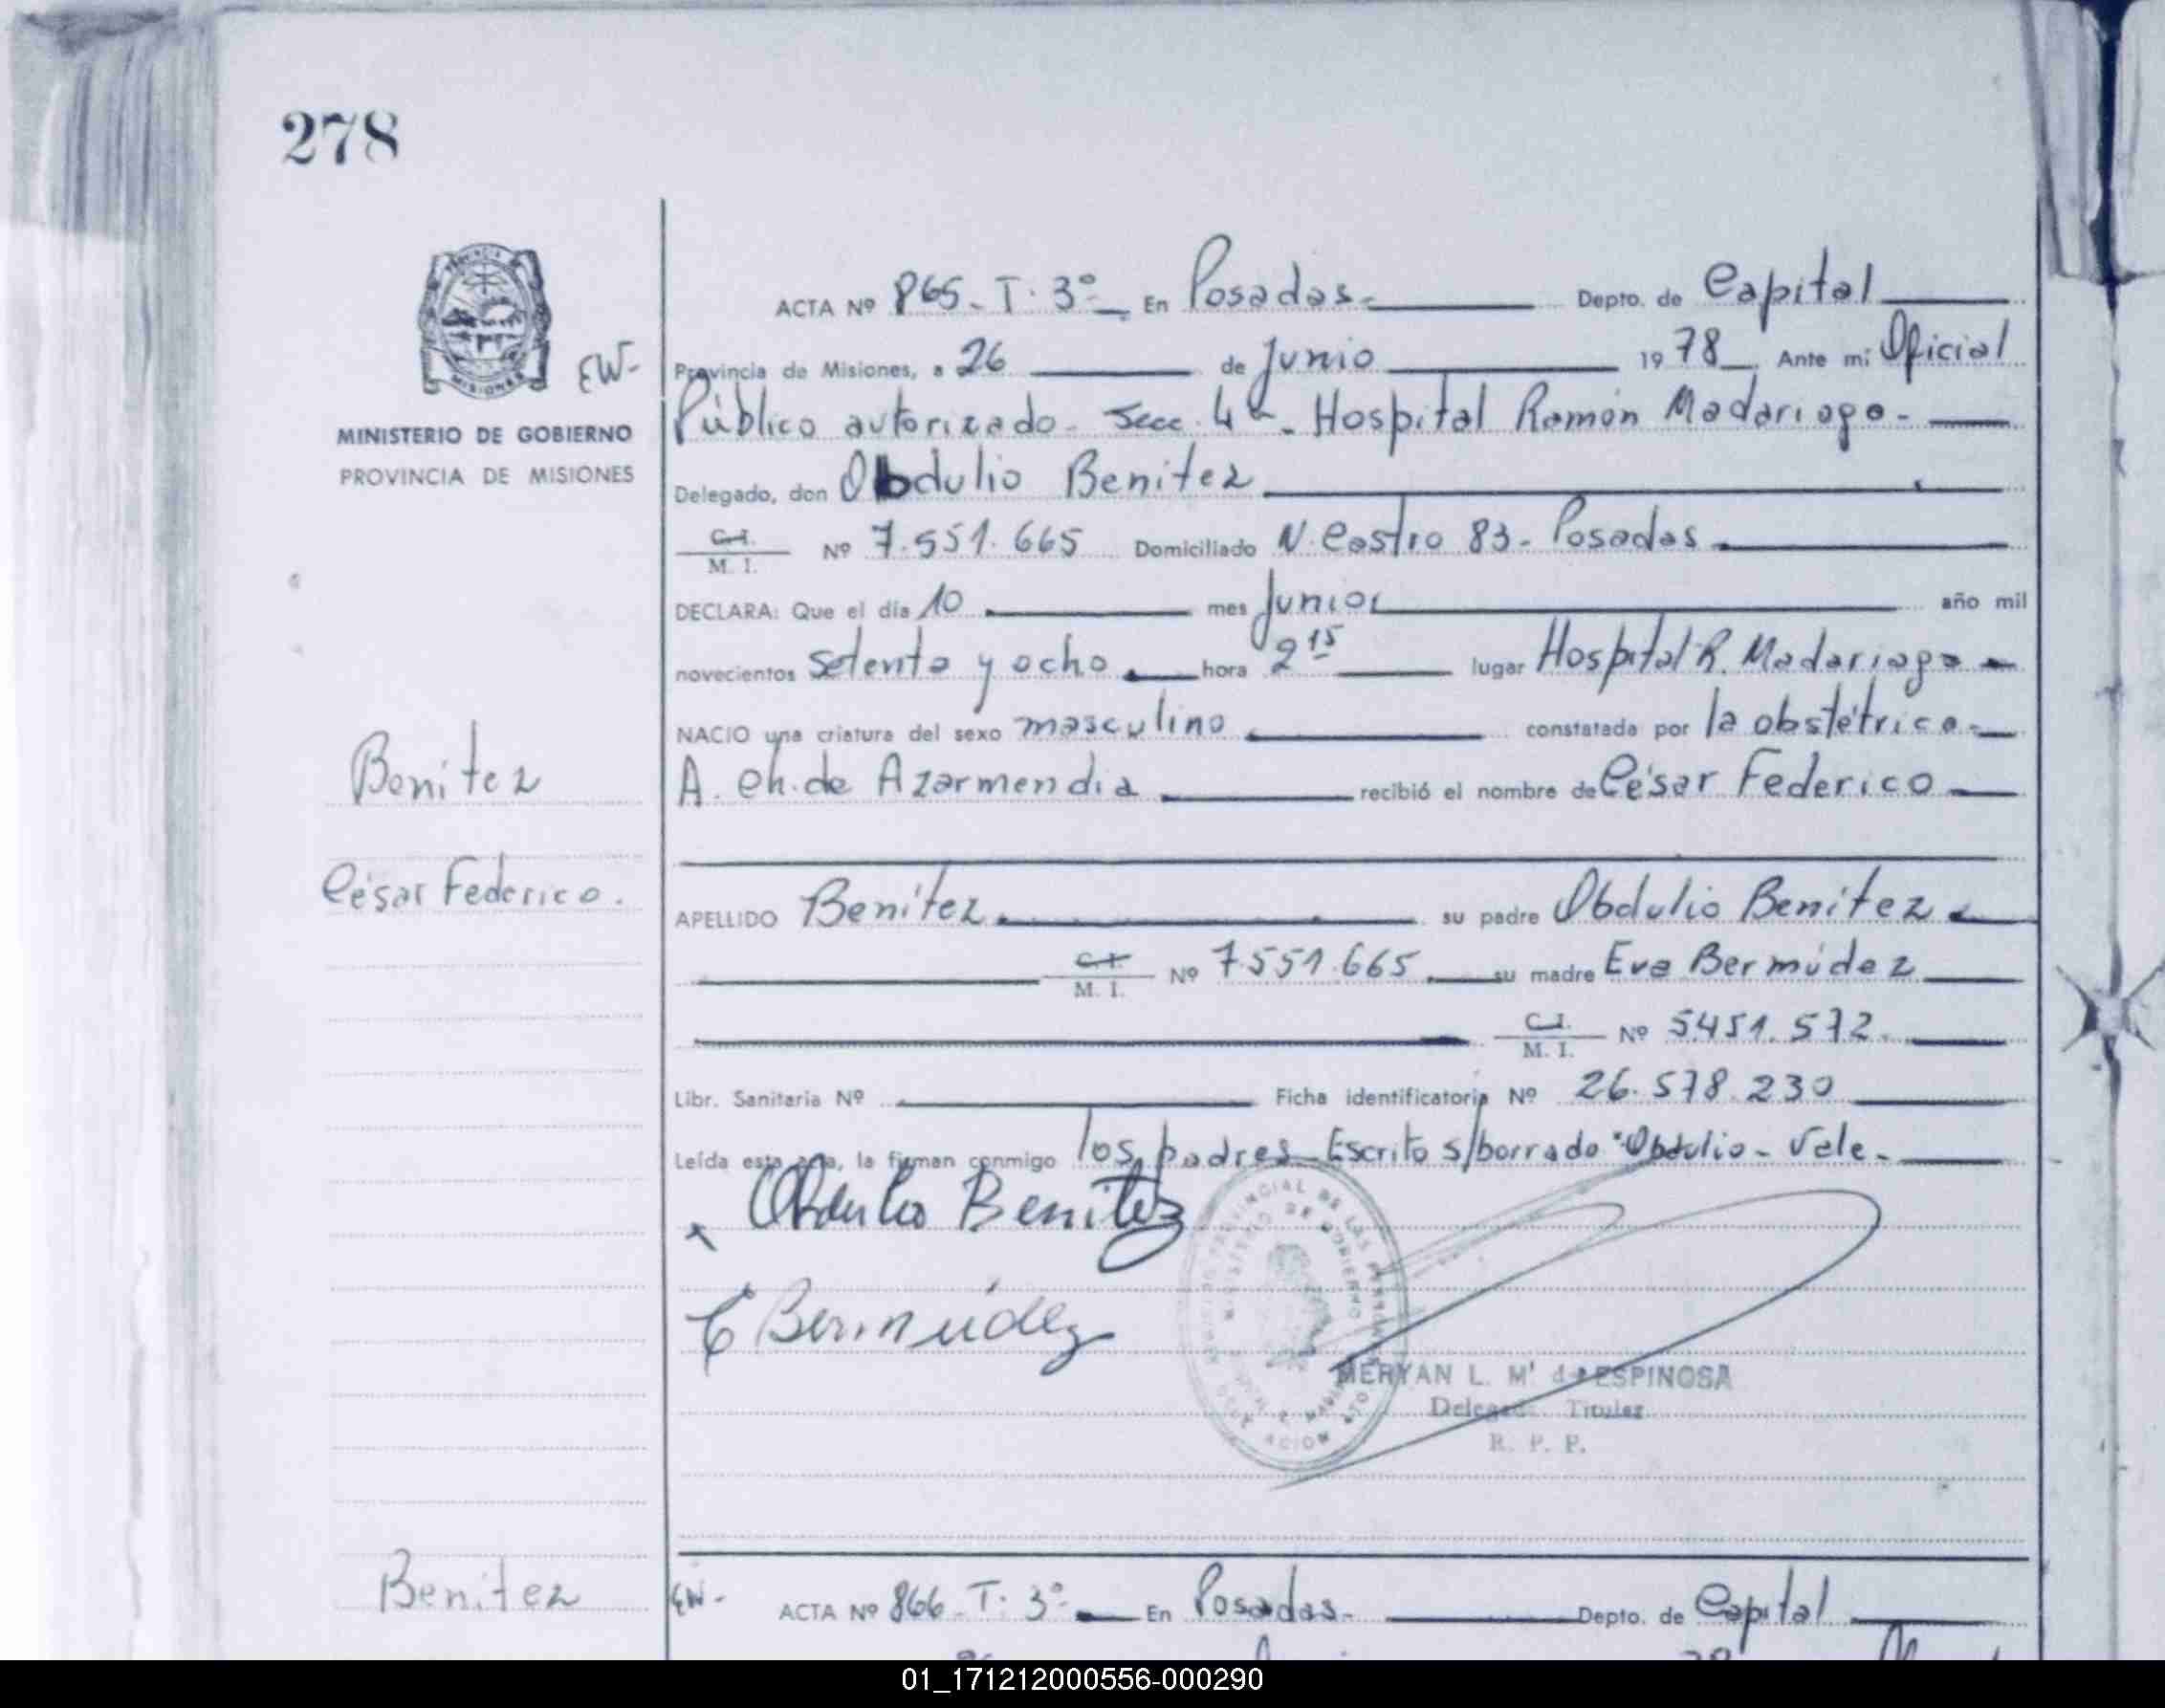 278
ACTA Nº 865 - T. 3º - En Posadas.- Depto. de Capital
EW- Provincia de Misiones, a 26 de Junio 1978 Ante mí Oficial
MINISTERIO DE GOBIERNO
PROVINCIA DE MISIONES
Público autorizado - Secc. 4ª - Hospital Ramón Madariaga -
Delegado, don Obdulio Benítez
C.I. M. I. Nº 7.551.665 Domiciliado N. Castro 83 - Posadas
DECLARA: Que el día 10 mes Junio año mil
novecientos setenta y ocho hora 2 15 lugar Hospital R. Madariaga
NACIO una criatura del sexo masculino constatada por la obstétrica -
Benítez
A. Ch. de Azarmendia recibió el nombre de César Federico
César Federico.
APELLIDO Benítez su padre Obdulio Benítez
C.I. M. I. Nº 7.551.665 su madre Eva Bermúdez
C.I. M. I. Nº 5.451.572
Libr. Sanitaria Nº Ficha identificatoria Nº 26.578.230
Leída esta acta, la firman conmigo los padres - Escrito s/borrado "Obdulio - Vale -
Obdulio Benitez
E Bermúdez
MERYAN L. M. de ESPINOSA
Delegada Titular
R. P. P.
Benítez
EW- ACTA Nº 866 - T. 3º - En Posadas - Depto. de Capital
01_171212000556-000290